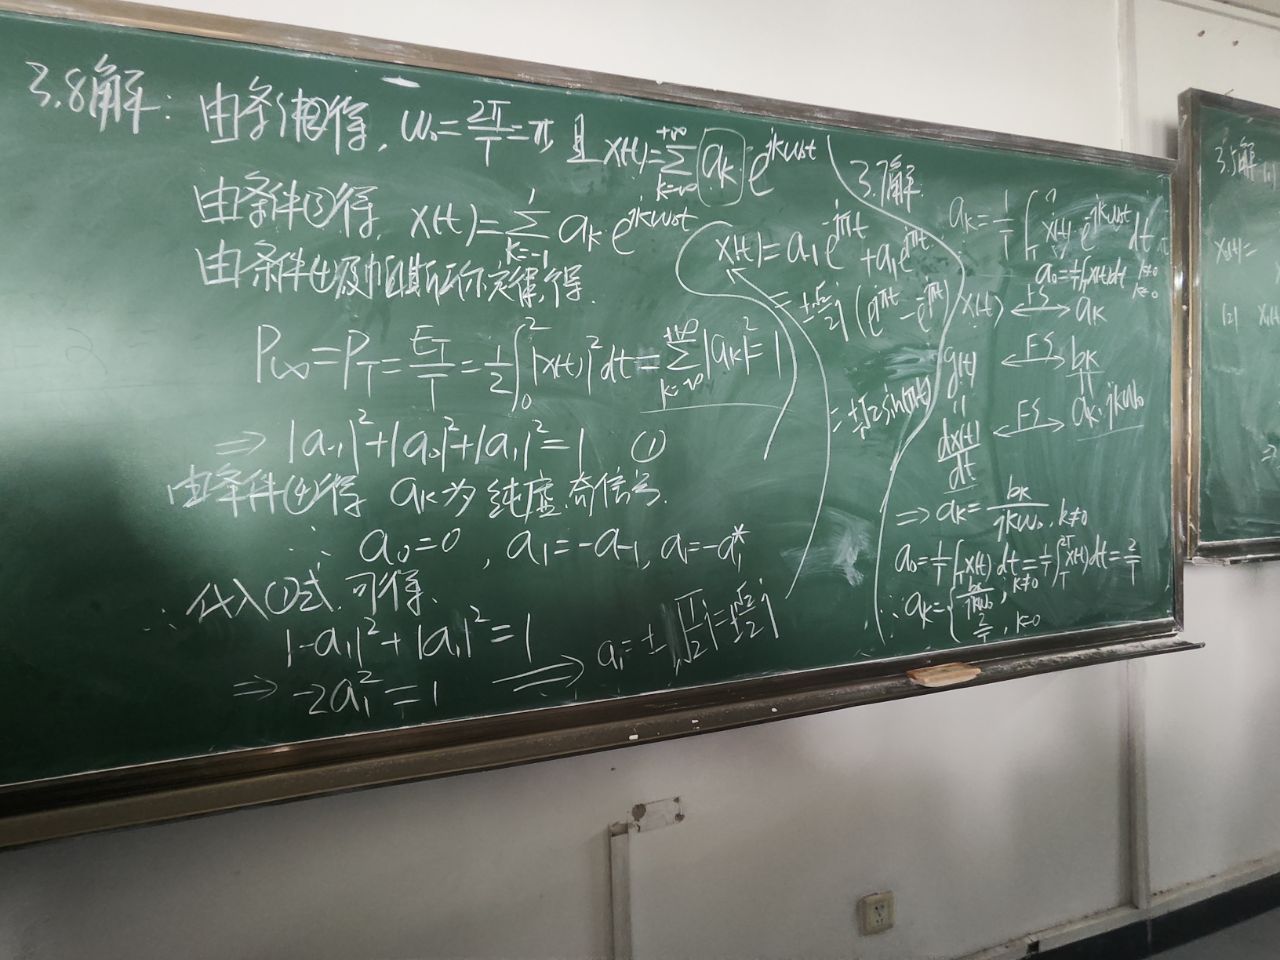 3.8解: 由条件②得, ω₀=2π/T=π, 且 x(t)=∑_{k=-∞}^{+∞} a_k e^{jkω₀t}
由条件(3)得, x(t)=∑_{k=-1}^{1} a_k e^{jkω₀t}
由条件(4)及帕斯瓦尔定律,得.
P_∞=P_T=E_T/T=1/2∫_0^2|x(t)|²dt=∑_{k=-∞}^{+∞}|a_k|²=1
⇒ |a₋₁|²+|a₀|²+|a₁|²=1 ①
由条件(4)得 a_k为纯虚奇信号.
∴ a₀=0, a₁=-a₋₁, a₁=-a₁*
∴ 代入①式 可得,
|-a₁|²+|a₁|²=1
⇒ -2a₁²=1 ⇒ a₁=±√(1/2)j=±(√2/2)j
x(t)=a₋₁e^{-jπt}+a₁e^{jπt}
=±(√2/2)j(e^{jπt}-e^{-jπt})
=±√2sin(πt)
3.7解.
a_k=1/T∫_T x(t)e^{-jkω₀t}dt
a₀=1/T∫x(t)dt k≠0
x(t) ←FS→ a_k
g(t) ←FS→ b_k
dx(t)/dt ←FS→ a_k·jkω₀
⇒ a_k=b_k/(jkω₀), k≠0
a₀=1/T∫_T x(t)dt=1/T∫_T^{2T} x(t)dt=2/T
∴ a_k={b_k/(jkω₀), k≠0
2/T, k=0
3.5解
x₁(t)=
(2)